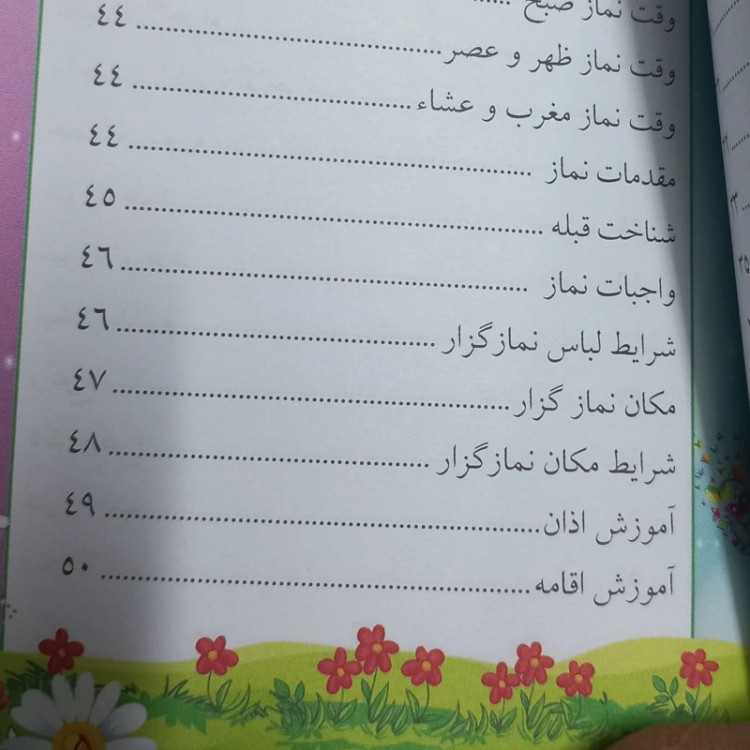 وقت نماز صبح ..........
وقت نماز ظهر و عصر .......... ٤٤
وقت نماز مغرب و عشاء .......... ٤٤
مقدمات نماز .......... ٤٤
شناخت قبله .......... ٤٥
واجبات نماز .......... ٤٦
شرایط لباس نمازگزار .......... ٤٦
مکان نماز گزار .......... ٤٧
شرایط مکان نمازگزار .......... ٤٨
آموزش اذان .......... ٤٩
آموزش اقامه .......... ٥٠
٨